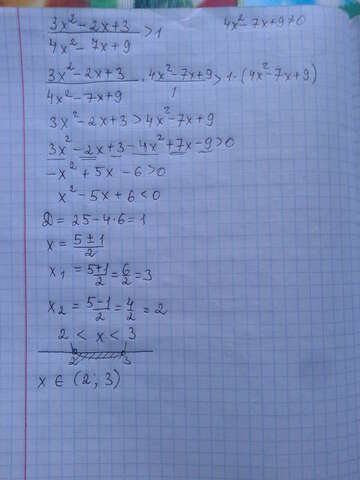 (3x² - 2x + 3)/(4x² - 7x + 9) > 1    4x² - 7x + 9 ≠ 0
(3x² - 2x + 3)/(4x² - 7x + 9) · (4x² - 7x + 9)/1 > 1 · (4x² - 7x + 9)
3x² - 2x + 3 > 4x² - 7x + 9
3x² - 2x + 3 - 4x² + 7x - 9 > 0
-x² + 5x - 6 > 0
x² - 5x + 6 < 0
D = 25 - 4·6 = 1
x = (5 ± 1)/2
x₁ = (5+1)/2 = 6/2 = 3
x₂ = (5-1)/2 = 4/2 = 2
2 < x < 3
2 3
x ∈ (2; 3)